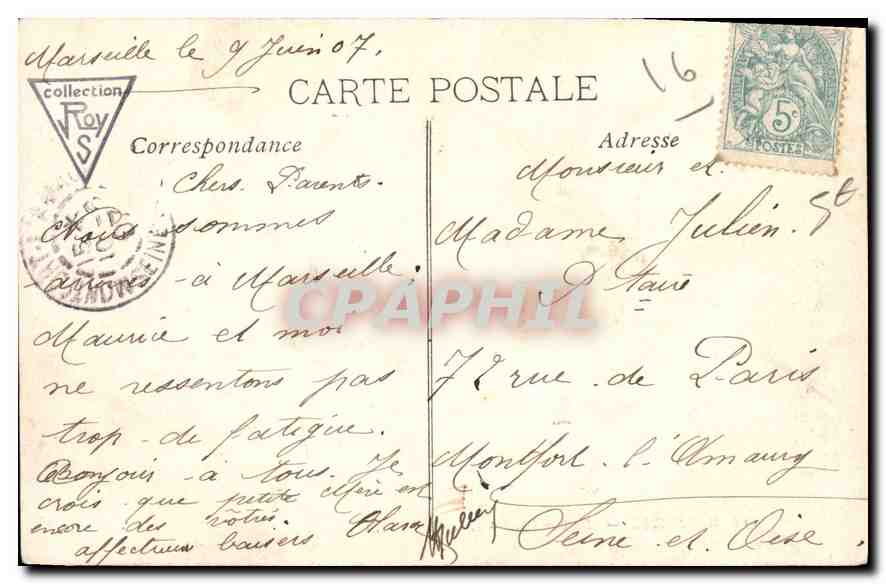 Marseille le 9 Juin 07.
16
collection
Roy
S
CARTE POSTALE
5c
POSTES
Correspondance
Adresse
Chers Parents.
Nous sommes
arrivés à Marseille.
Maurice et moi
ne ressentons pas
trop de fatigue.
Bonjour à tous. Je
crois que petite Mère est
encore des vôtres.
affectueux baisers
Monsieur et
Madame Julien
72 rue de Paris
Montfort l'Amaury
Seine et Oise.
CPAPHIL